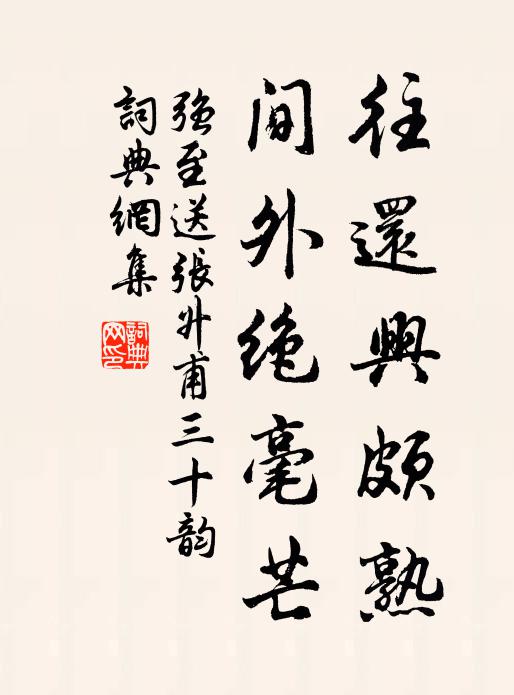 往還興頗熟
間外绝毫芒
强至送張升甫三十韵
詞典網集
詞典网印